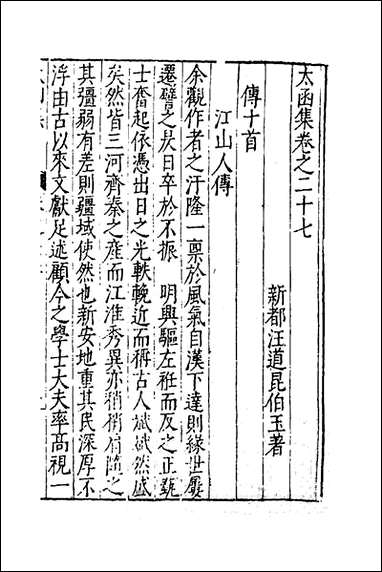 太函集卷之二十七
新都汪道昆伯玉著
傳十首
江山人傳
余觀作者之汙隆一禀於風氣自漢下達則緣世屢
遷譬之炭日卒於不振 明興驅左袵而反之正
士奮起依憑出日之光軼輓近而稱古人斌斌然盛
矣然皆三河齊秦之産而江淮秀異亦稍稍有隨之
其彊弱有差則疆域使然也新安地重其民深厚不
浮由古以來文獻足述顧今之學士大夫率髙視一